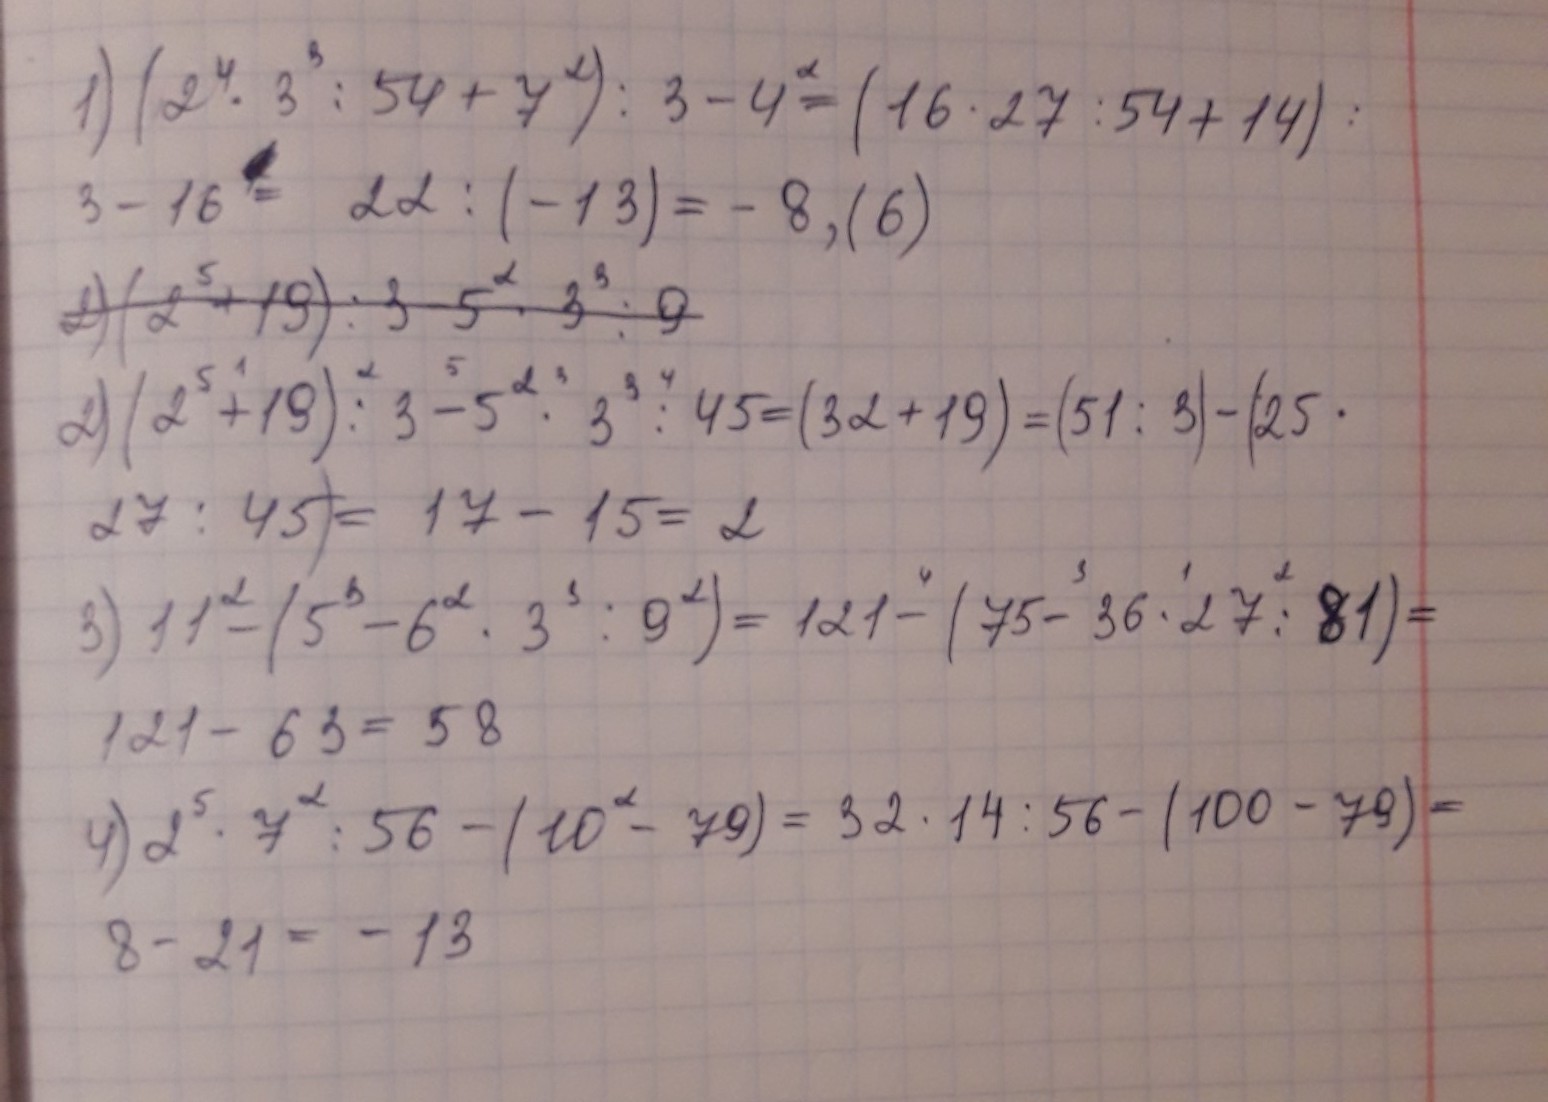 1) (2⁴ · 3³ : 54 + 7²) : 3 - 4² = (16 · 27 : 54 + 14) :
3 - 16 = 22 : (-13) = - 8,(6)
2) (2⁵ + 19) : 3 5² · 3³ : 9
2) (2⁵ +¹ 19) :² 3 -⁵ 5² ·³ 3³ :⁴ 45 = (32 + 19) = (51 : 3) - (25 ·
27 : 45) = 17 - 15 = 2
3) 11² - (5³ - 6² · 3³ : 9²) = 121 -⁴ (75 -³ 36 ·¹ 27 :² 81) =
121 - 63 = 58
4) 2⁵ · 7² : 56 - (10² - 79) = 32 · 14 : 56 - (100 - 79) =
8 - 21 = - 13